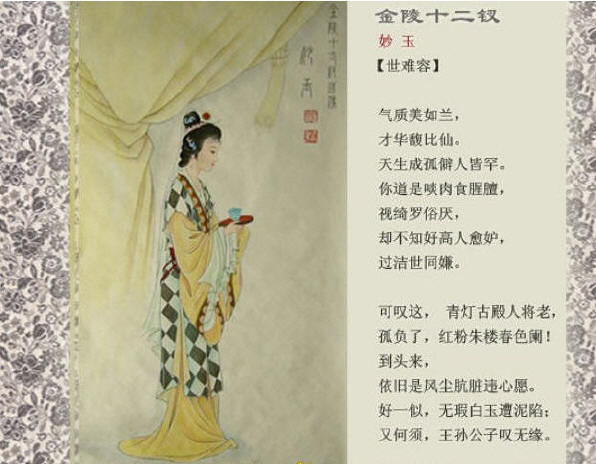 金陵十二钗
妙玉
【世难容】
气质美如兰，
才华馥比仙。
天生成孤僻人皆罕。
你道是啖肉食腥膻，
视绮罗俗厌，
却不知好高人愈妒，
过洁世同嫌。
可叹这， 青灯古殿人将老，
孤负了，红粉朱楼春色阑！
到头来，
依旧是风尘肮脏违心愿。
好一似，无瑕白玉遭泥陷；
又何须，王孙公子叹无缘。
妙玉